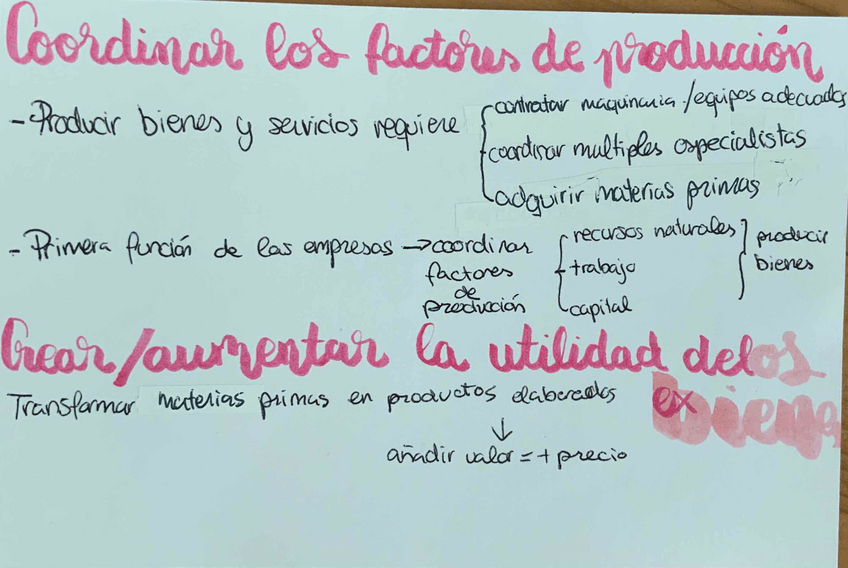 Coordinar los factores de producción
- Producir bienes y servicios requiere
contratar maquinaria/equipos adecuados
coordinar multiples especialistas
adquirir materias primas
- Primera función de las empresas → coordinar factores de producción
recursos naturales
trabajo
capital
producir bienes
Crear/aumentar la utilidad de los
bienes
Transformar materias primas en productos elaborados
↓
añadir valor = + precio